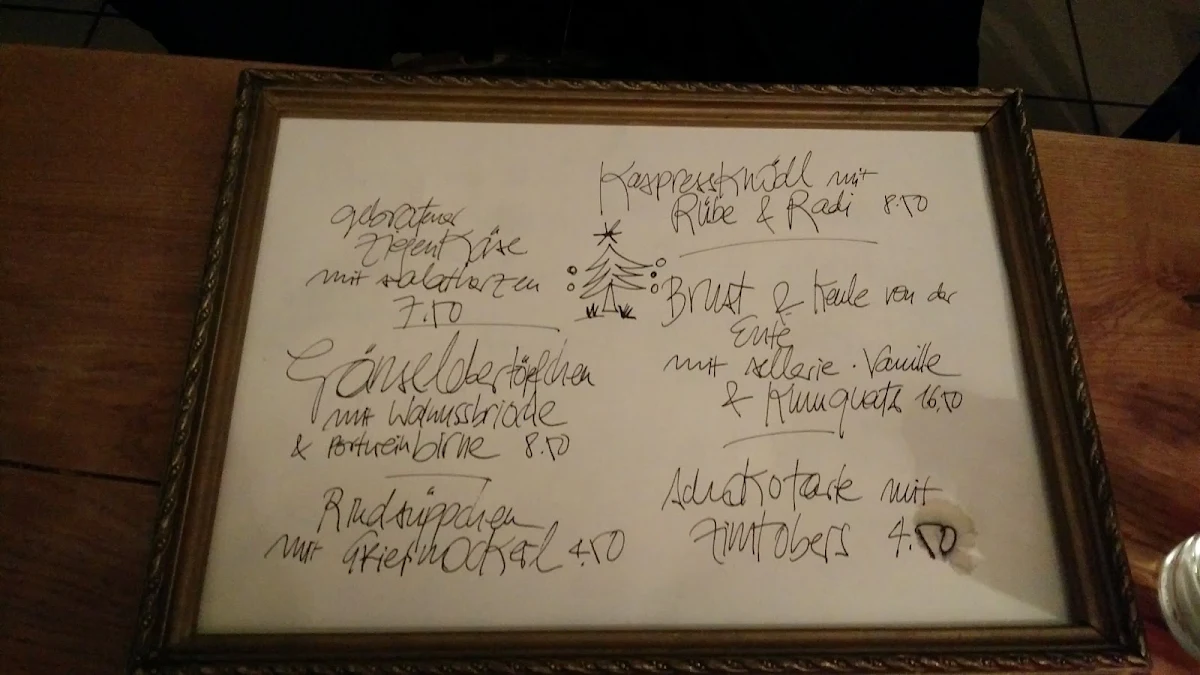 gebratener
Ziegenkäse
mit salatherzen
7.50
Gänselebertöpfchen
mit Walnussbrioche
& Portweinbirne 8.50
Rindsüppchen
mit Grießnockerl 4.50
Kaspressknödl mit
Rübe & Radi 8.50
Brust & Keule von der
Ente
mit sellerie. Vanille
& Kumquats 16.50
mit
Zimtobers 4.50